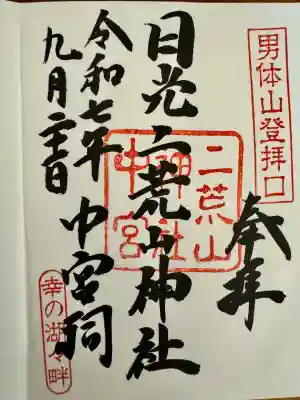 男体山登拝口
奉拝
二荒山
神社
中宮
日光二荒山神社
中宮祠
令和七年
九月
幸の湖々畔